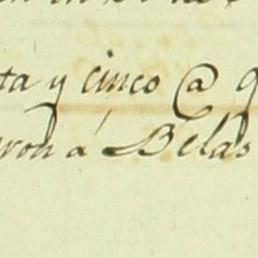 ta y cinco @ q
ron á Belas